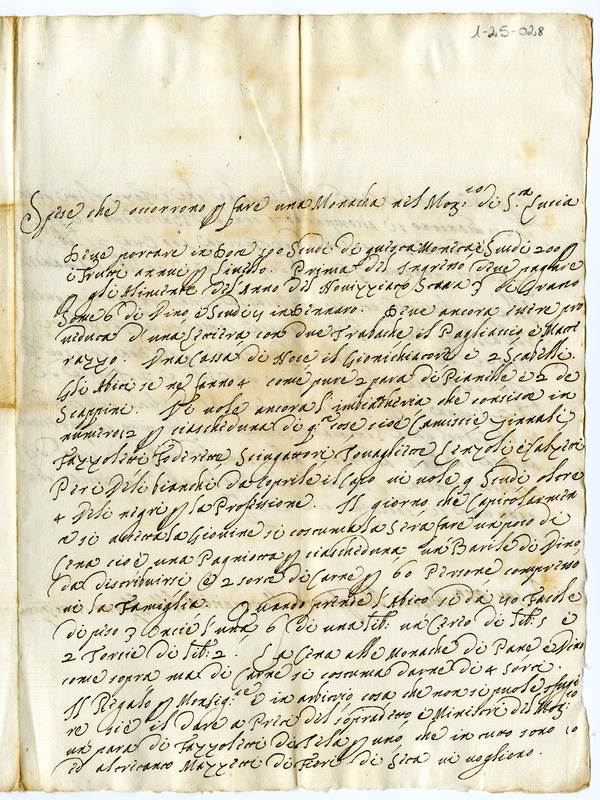 1-25-028
Spese che occorrono p fare una Monacha nel Moz.ro di S.ta Lucia
Deve portare in Dote 500 Scudi di questa Moneta e Scudi 200 p
i frutti annui p livello. Prima del Ingresso deve pagare
p gli Alimenti del Anno del Novizziato Scara 3 di Grano
Some 6 di Vino e Scudi 4 in Dennaro. Deve ancora entre pro
veduta d'una lettiera con due Trabache il Pagliaccio e Matt
razzo. Una Cassa di Noce il Gionichiatore e 2 Scabelli.
Gli Abiti se ne fanno 4 come pure 2 para di Pianelle e 2 de
Scappini. Vi vole ancora l'imbiancheria che consiste in
numero 12 p ciascheduna di q.te cose cioè Camiscie Zinnali
Fazzoletti Foderette Sciugatori Tovagliette Lenzoli e Calzetti
Per i Veli bianchi da coprire il Capo vi vole 9 Scudi oltre
4 Veli negri p la Professione. Il giorno che Capitolarmen
te si accetta la Giovine si costuma la Sera fare un poco di
Cena cioè una Pagniotta p ciascheduna un Barile di Vino
da distribuirsi e 2 sorte di Carne p 60 Persone compreso
vi la Famiglia. Quando prende l'Abito si da 40 Facole
di peso 3 Oncie l'una 6 di una lib: un Cerio di lib: 5 e
2 Torcie di lib: 2. La Cena alle Monache di Pane e Vino
come sopra ma di Carne si costuma darne di 4 sorti.
Il Regalo p Monsig.re è in arbitrio cosa che non si puole sfugi
re si è il dare a Preti del sopradetto e Ministri del Moz:ro
un para di Fazzoletti di Tela p uno, che in tutto sono 10
ed altrettanto Mazzetti di Fiori di Seta vi vogliono.